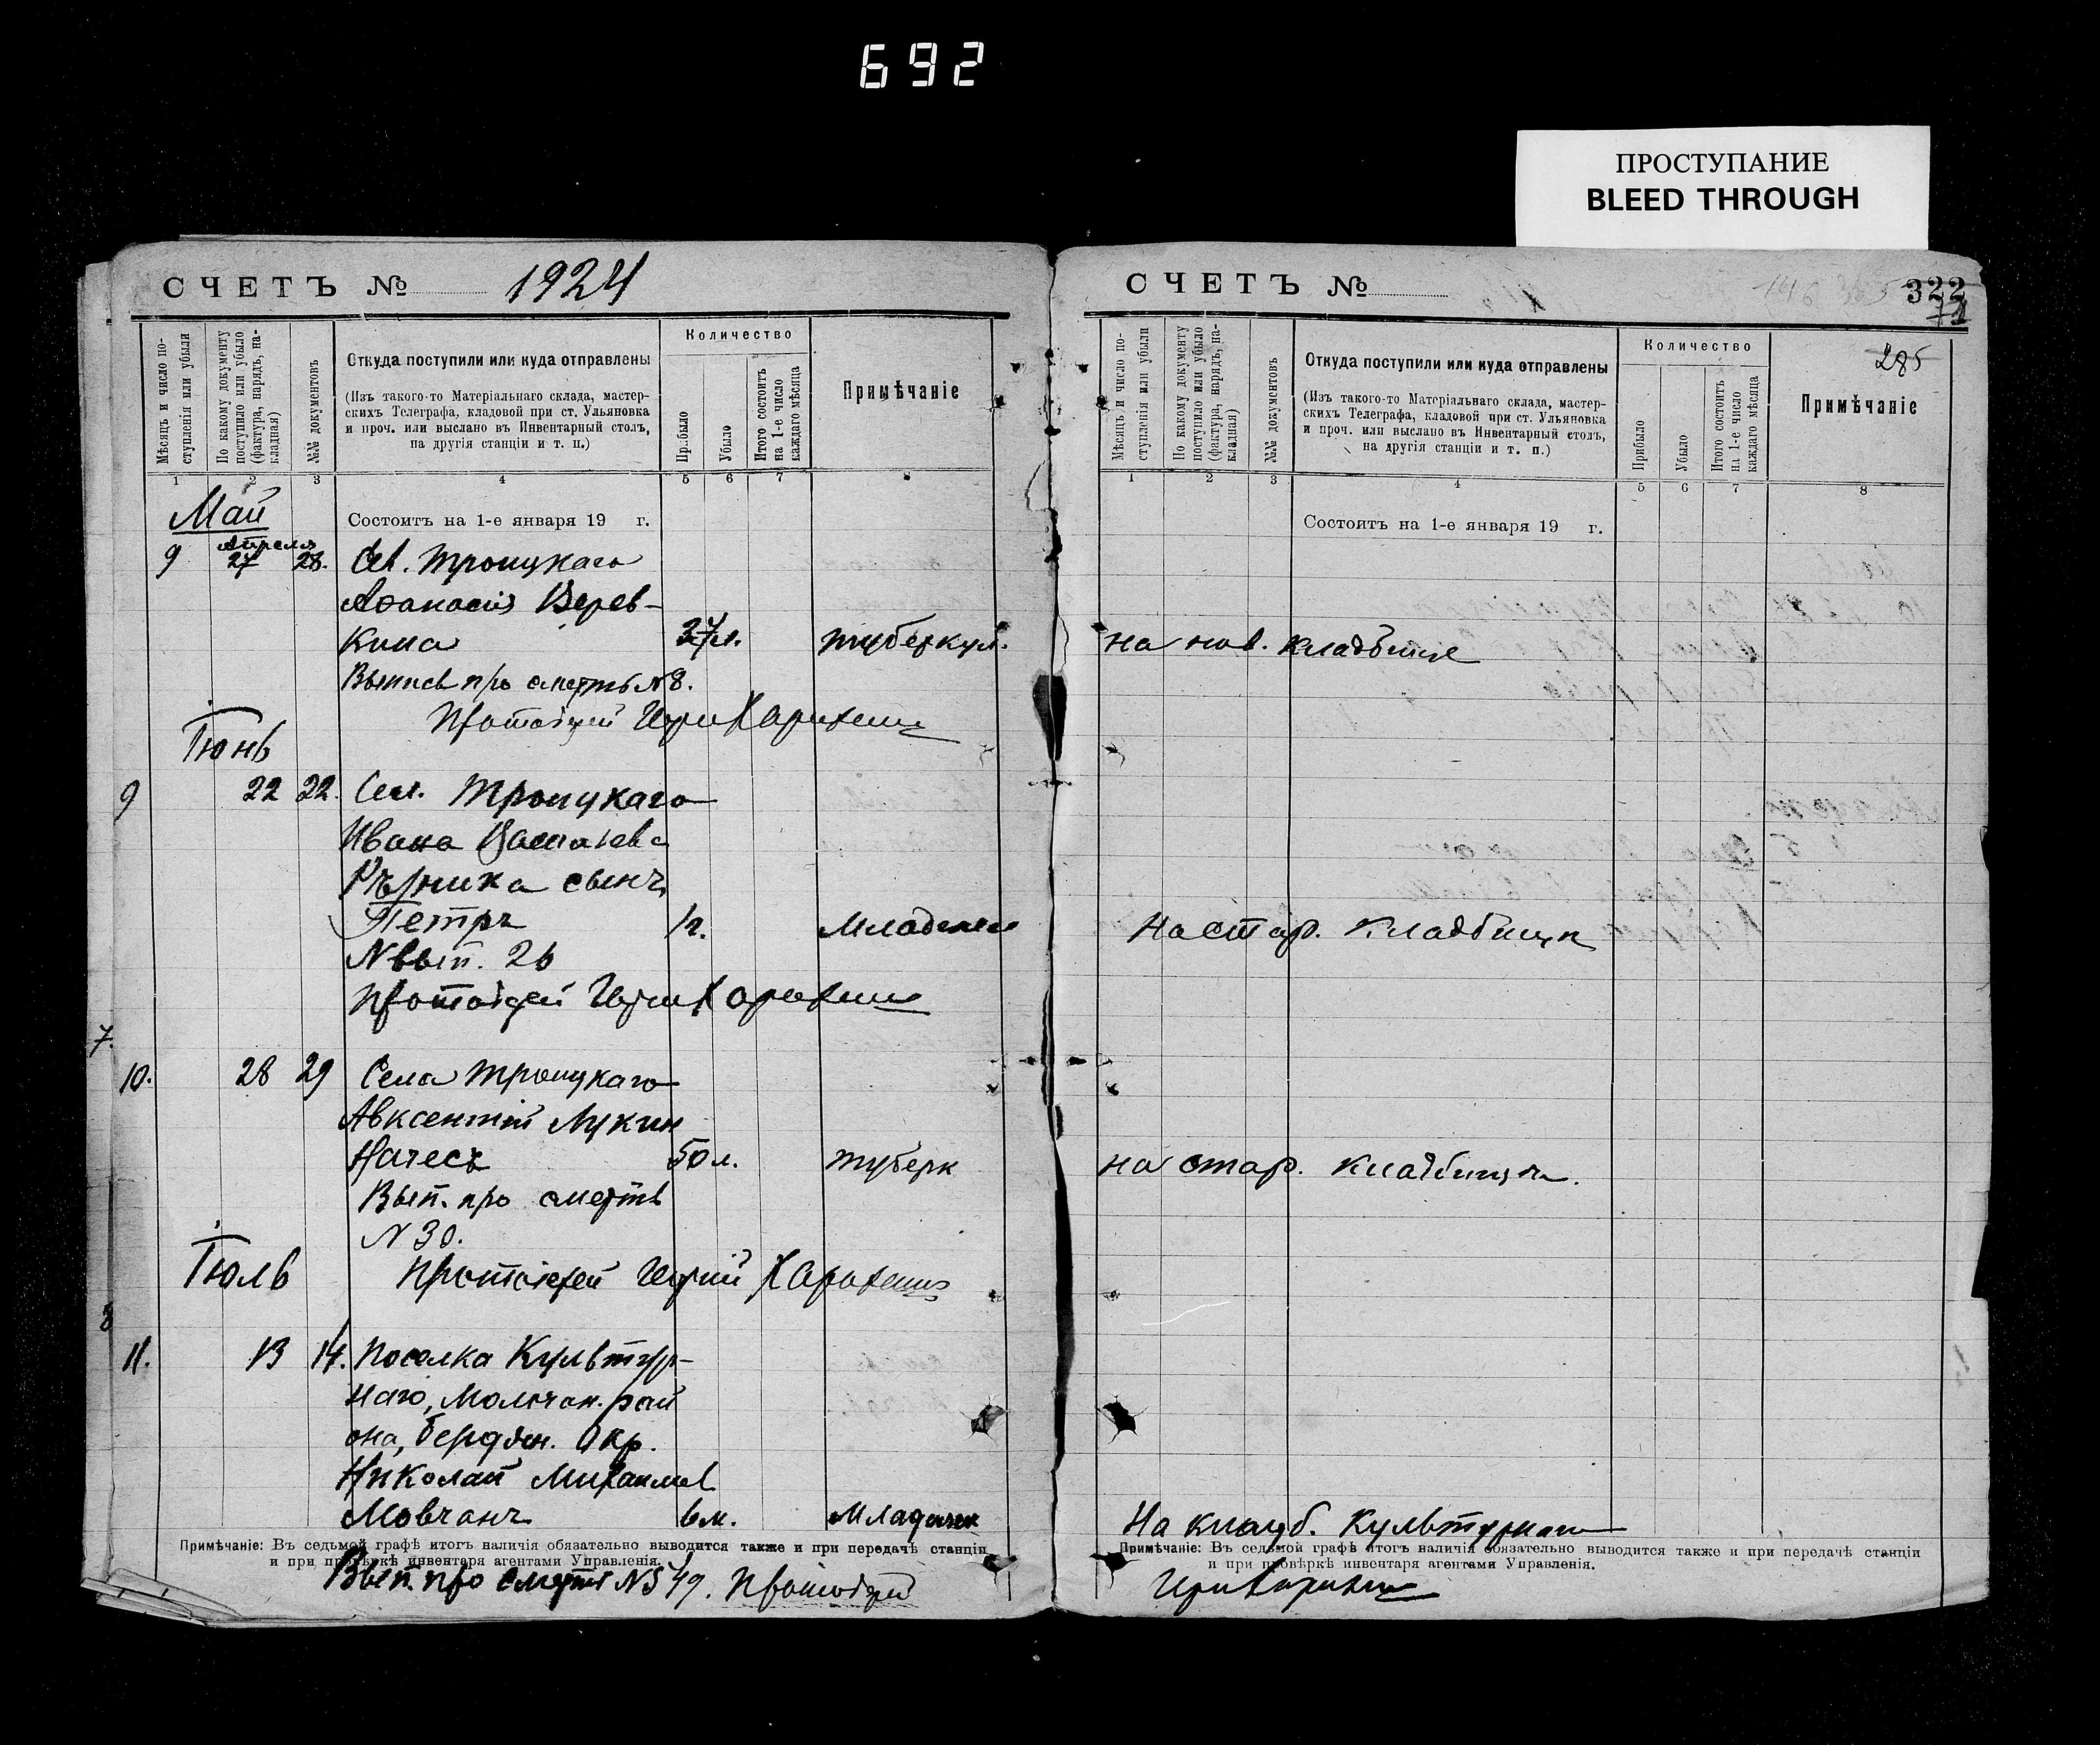 692
ПРОСТУПАНИЕ
BLEED THROUGH
СЧЕТЪ № 1924
Мѣсяцъ и число по-
ступленія или убыли
По какому документу
поступило или убыло
(фактура, нарядъ, на-
кладная)
№№ документовъ
Откуда поступили или куда отправлены
(Изъ такого-то Матеріальнаго склада, мастер-
скихъ Телеграфа, кладовой при ст. Ульяновка
и проч. или выслано въ Инвентарный столъ,
на другія станціи и т. п.)
Количество
Прибыло
Убыло
Итого состоитъ
на 1-е число
каждаго мѣсяца
Примѣчаніе
1 2 3 4 5 6 7
Май
Состоитъ на 1-е января 19 г.
Апреля
9 27 28. Сел. Троицкаго
Афанасій Верев-
кина 37л. туберкул.
Выпись про смерть №8.
Протоіерей
Іюнь
9 22 22. Сел. Троицкаго
Ивана
сынъ
Петръ 1г. Младенец
№ вып. 26
Протоіерей
7.
10. 28 29 Села Троицкаго
Авксентій Лукин
Начесъ 50л. туберк
Вып. про смерть
№ 30.
Іюль Протоіерей
8
11. 13 14. Поселка Культур-
наго, Молочан. рай
она, Бердян. Окр.
Николай Михаилов
Мовчанъ 6м. Младенец
Примѣчаніе: Въ седьмой графѣ итогъ наличія обязательно выводится также и при передачѣ станціи
и при провѣркѣ инвентаря агентами Управленія.
Вып. про смерть № 549. Протоіерей
СЧЕТЪ №
322
71
285
Мѣсяцъ и число по-
ступленія или убыли
По какому документу
поступило или убыло
(фактура, нарядъ, на-
кладная)
№№ документовъ
Откуда поступили или куда отправлены
(Изъ такого-то Матеріальнаго склада, мастер-
скихъ Телеграфа, кладовой при ст. Ульяновка
и проч. или выслано въ Инвентарный столъ,
на другія станціи и т. п.)
Количество
Прибыло
Убыло
Итого состоитъ
на 1-е число
каждаго мѣсяца
Примѣчаніе
1 2 3 4 5 6 7 8
Состоитъ на 1-е января 19 г.
на нов. кладбище
На стар. кладбищи
на стар. кладбищи.
На кладб. Культурнаго
Примѣчаніе: Въ седьмой графѣ итогъ наличія обязательно выводится также и при передачѣ станціи
и при провѣркѣ инвентаря агентами Управленія.